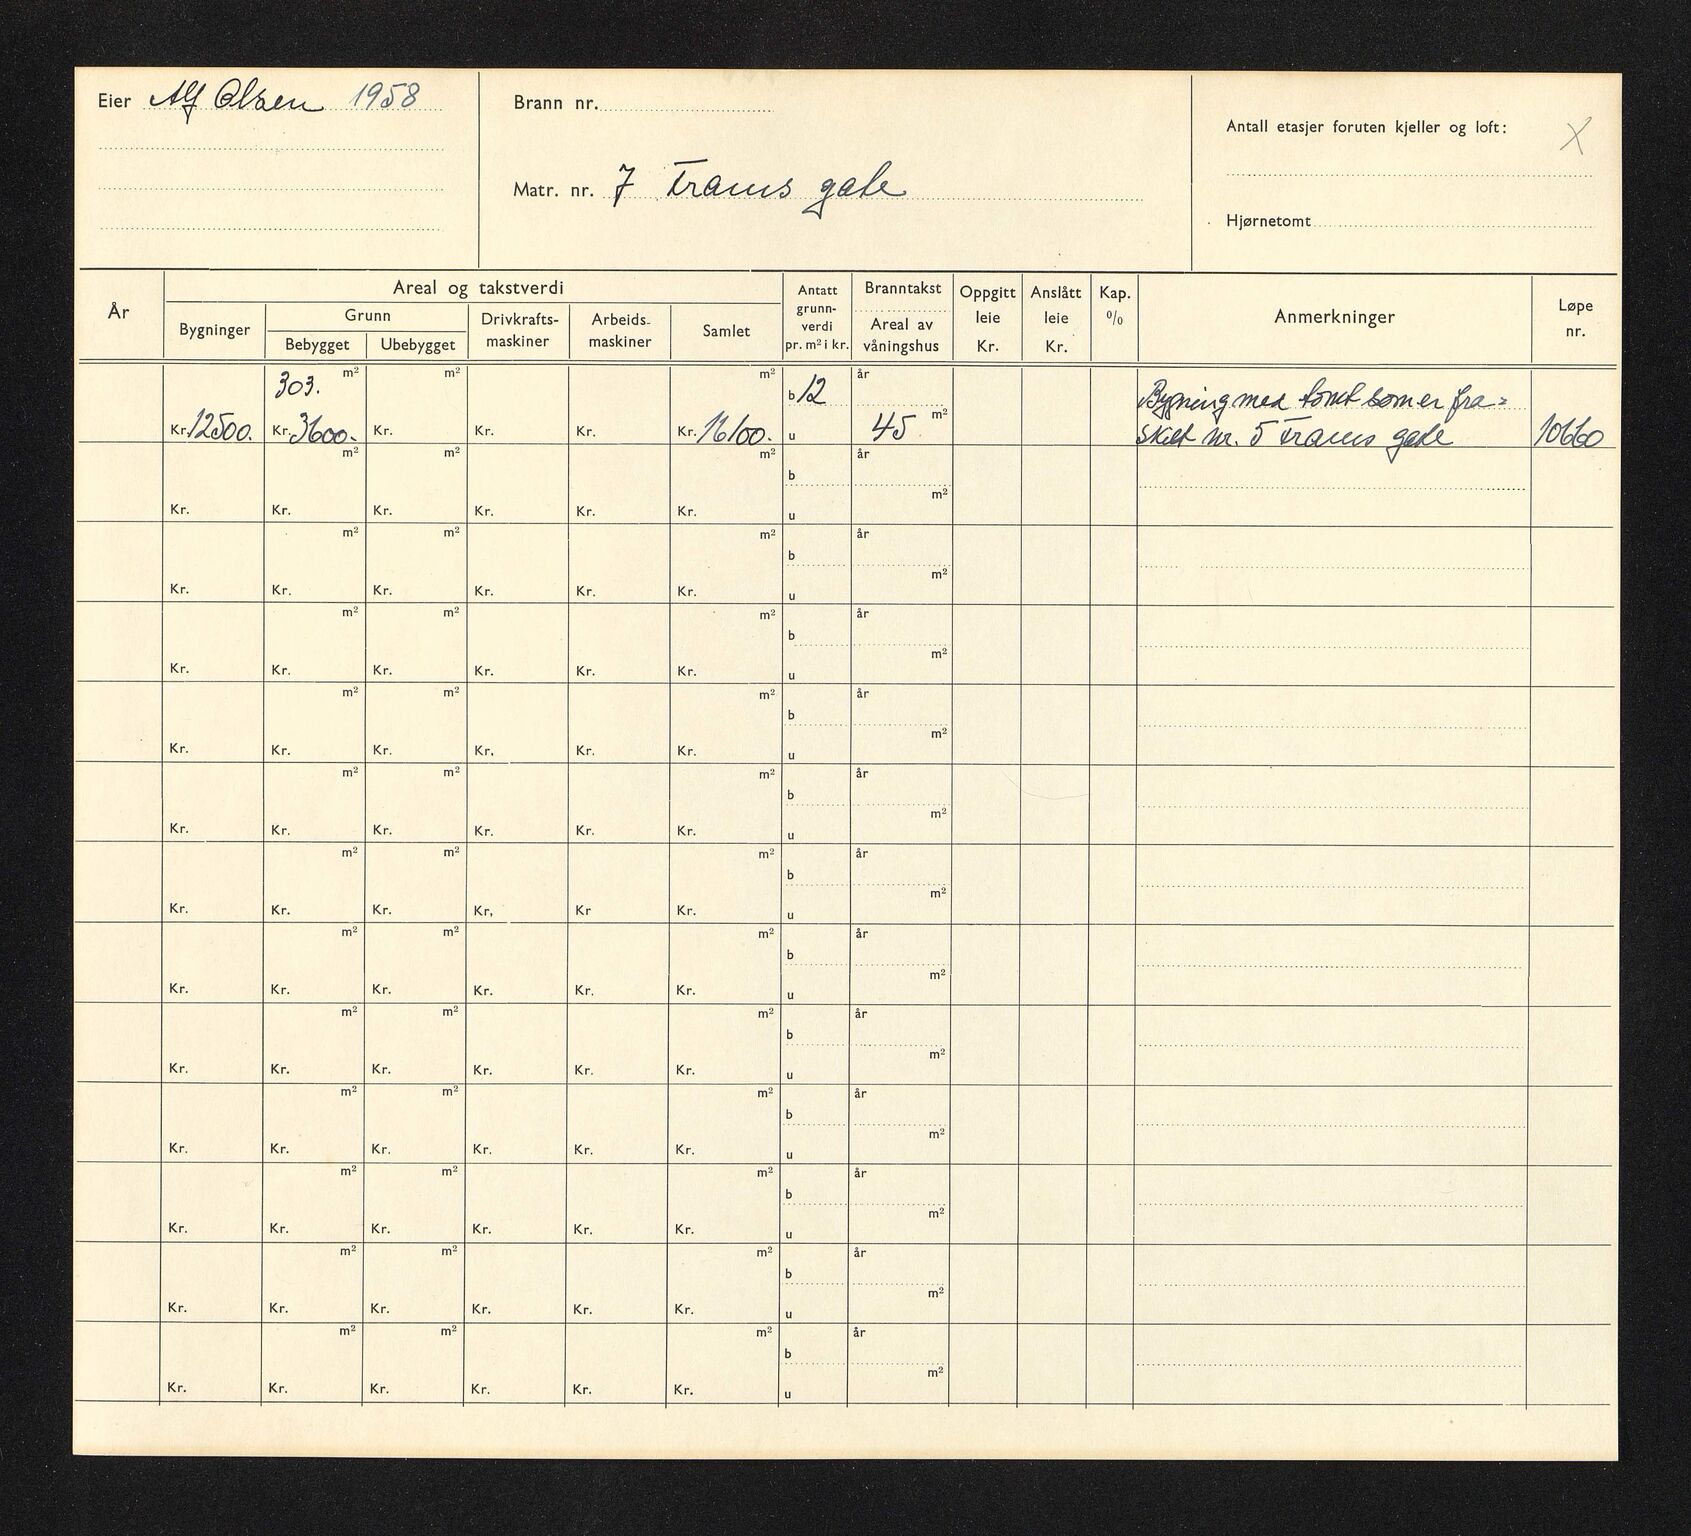 Eier Alf Olsen 1958
Brann nr.
Matr. nr. 7 Frams gate
Antall etasjer foruten kjeller og loft: X
Hjørnetomt
År
Areal og takstverdi
Bygninger
Grunn
Bebygget Ubebygget
Drivkrafts-
maskiner
Arbeids-
maskiner
Samlet
Antatt
grunn-
verdi
pr. m² i kr.
Branntakst
Areal av
våningshus
Oppgitt
leie
Kr.
Anslått
leie
Kr.
Kap.
%
Anmerkninger
Løpe
nr.
303. m² m² m² b 12 år Bygning med tomt som er fra=
Kr. 12500. Kr. 3600.- Kr. Kr. Kr. Kr. 16100. u 45 m² skilt nr. 5 Frams gate 10660
m² m² m² b år
Kr. Kr. Kr. Kr. Kr. Kr. u m²
m² m² m² b år
Kr. Kr. Kr. Kr. Kr. Kr. u m²
m² m² m² b år
Kr. Kr. Kr. Kr. Kr. Kr. u m²
m² m² m² b år
Kr. Kr. Kr. Kr. Kr. Kr. u m²
m² m² m² b år
Kr. Kr. Kr. Kr. Kr. Kr. u m²
m² m² m² b år
Kr. Kr. Kr. Kr, Kr Kr. u m²
m² m² m² b år
Kr. Kr. Kr. Kr. Kr. Kr. u m²
m² m² m² b år
Kr. Kr. Kr. Kr. Kr. Kr. u m²
m² m² m² b år
Kr. Kr. Kr. Kr. Kr. Kr. u m²
m² m² m² b år
Kr. Kr. Kr. Kr. Kr. Kr. u m²
m² m² m² b år
Kr. Kr. Kr. Kr. Kr. Kr. u m²
m² m² m² b år
Kr. Kr. Kr. Kr. Kr. Kr. u m²